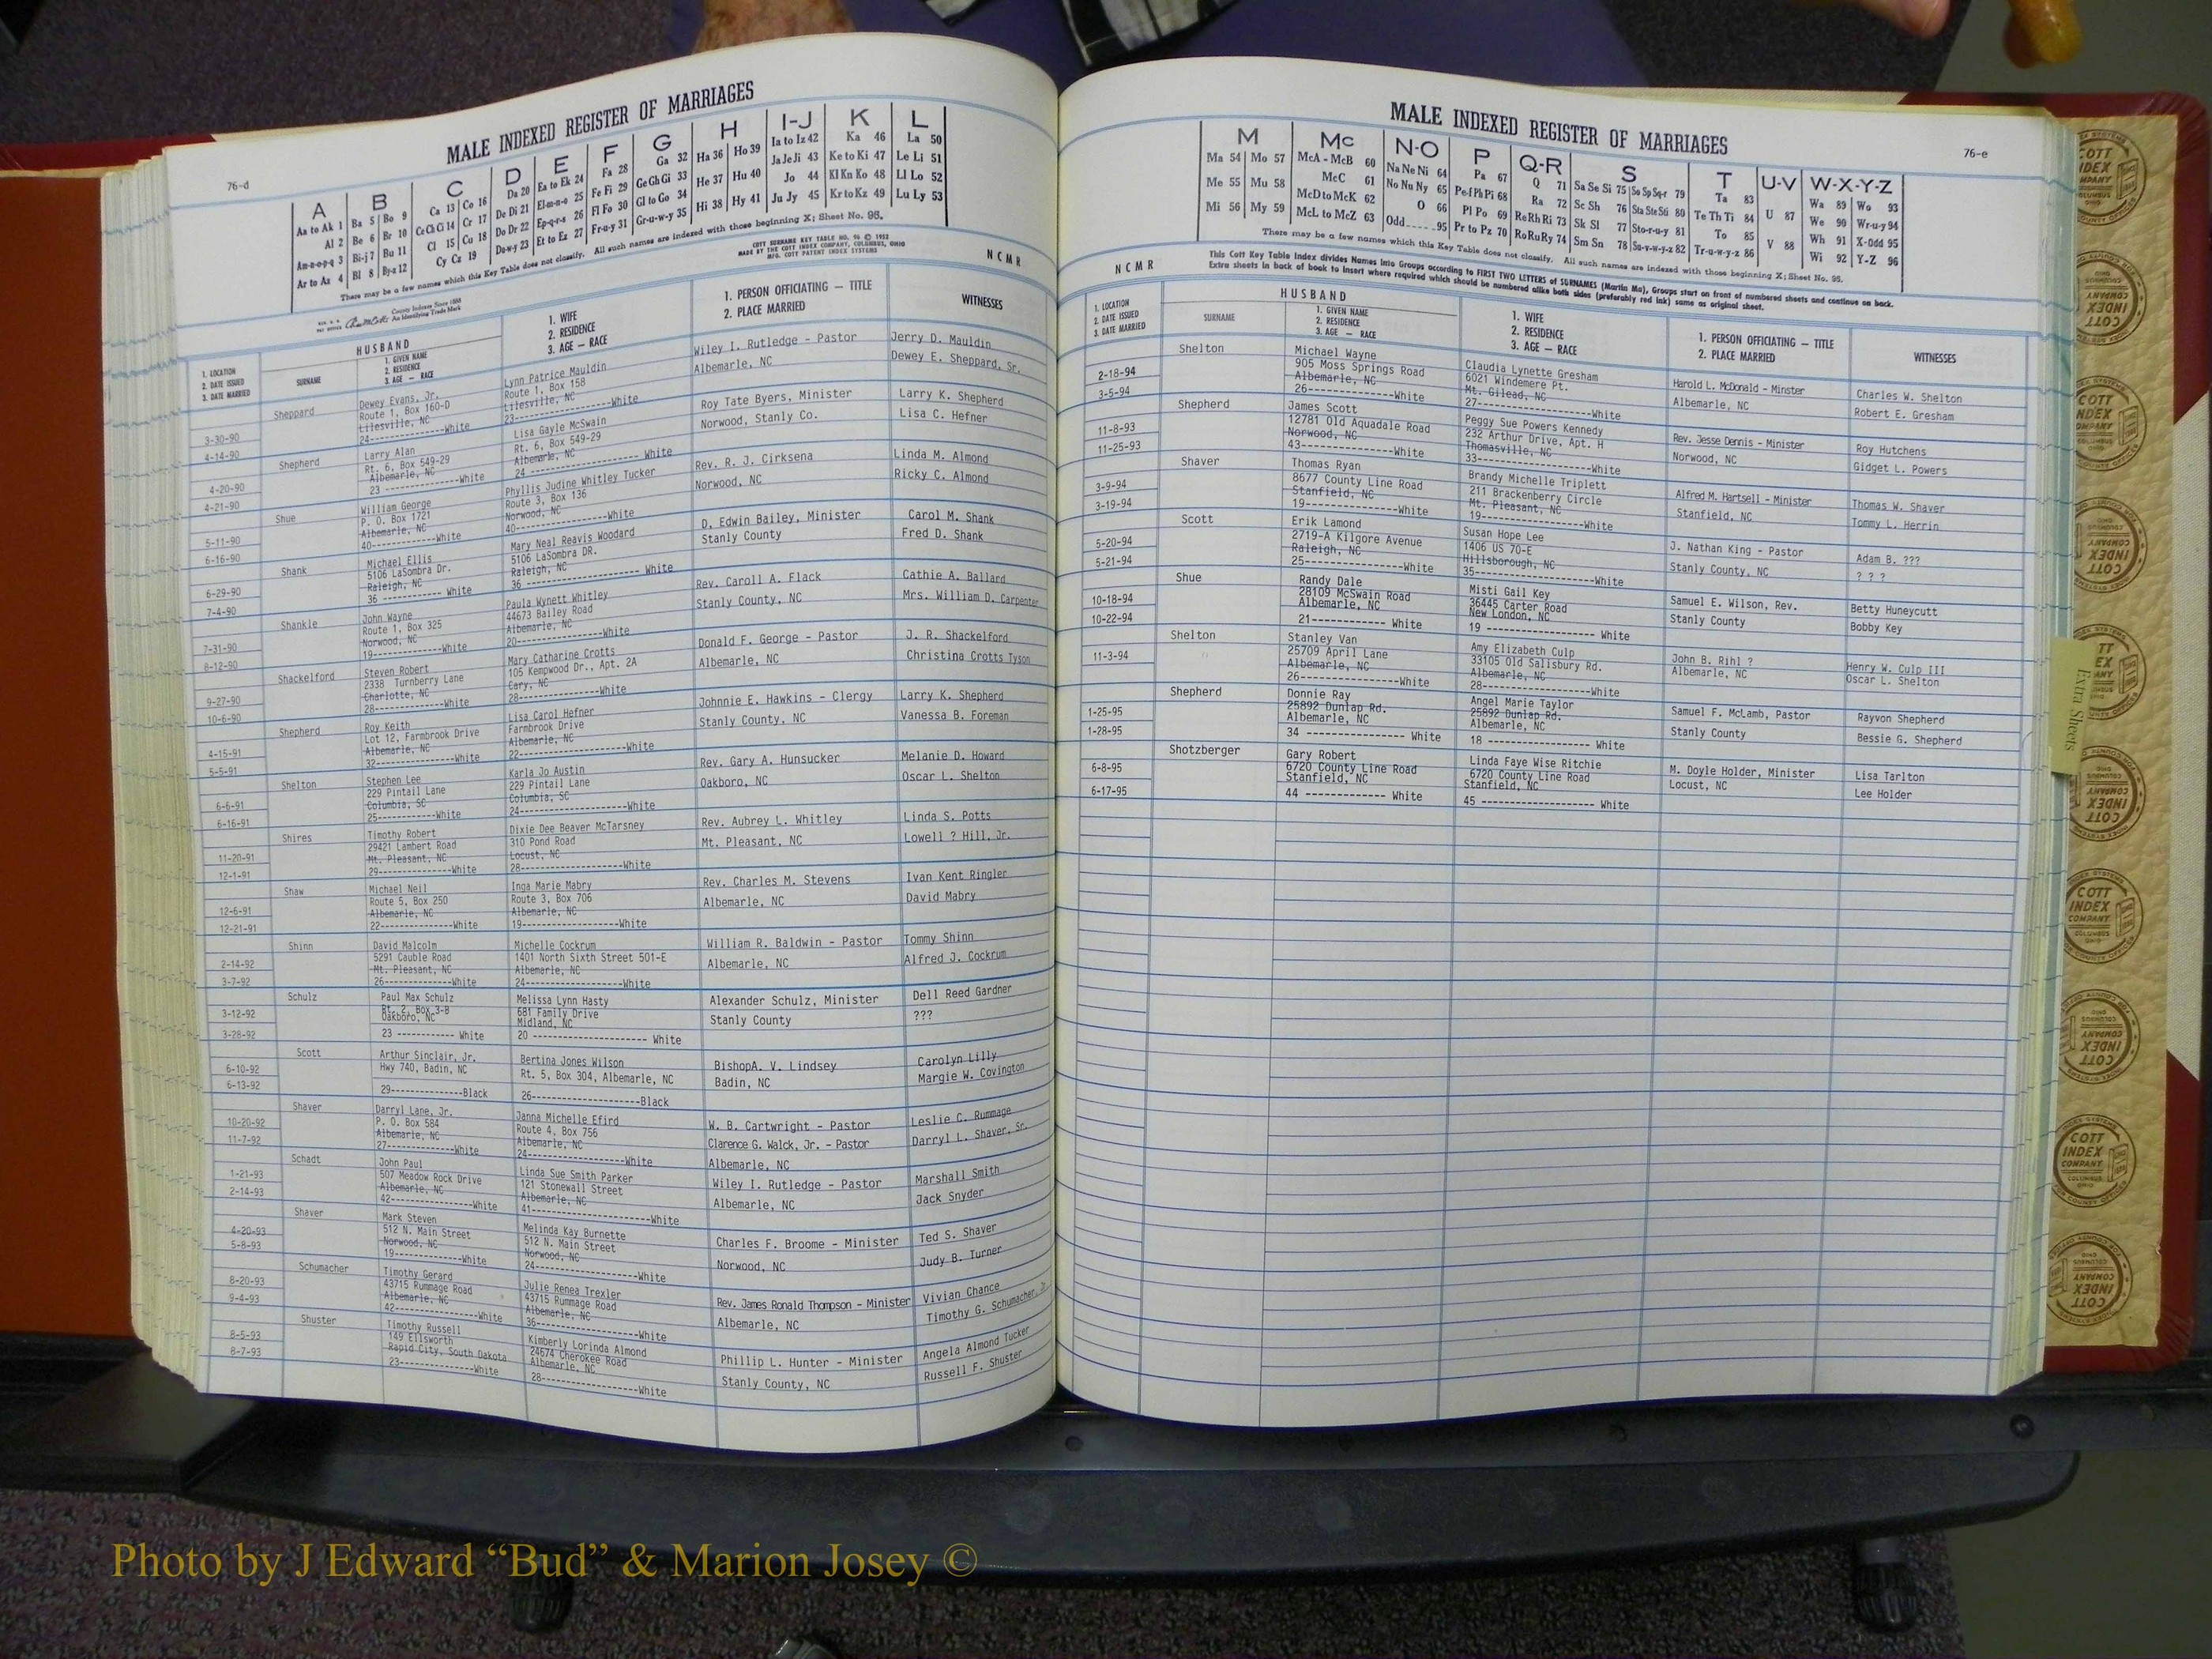 76-d
MALE INDEXED REGISTER OF MARRIAGES
A
Aa to Ak 1
Al 2
Am-n-o-p-q 3
Ar to Az 4
B
Ba 5 Bo 9
Be 6 Br 10
Bi-j 7 Bu 11
Bl 8 By-z 12
C
Ca 13 Co 16
Ce Ch Ci 14 Cr 17
Cl 15 Cu 18
Cy Cz 19
D
Da 20
De Di 21
Do Dr 22
Du-w-y 23
E
Ea to Ek 24
El-m-n-o 25
Ep-q-r-s 26
Et to Ez 27
F
Fa 28
Fe Fi 29
Fl Fo 30
Fr-u-y 31
G
Ga 32
Ge Gh Gi 33
Gl to Go 34
Gr-u-w-y 35
H
Ha 36 Ho 39
He 37 Hu 40
Hi 38 Hy 41
I-J
Ia to Iz 42
Ja Je Ji 43
Jo 44
Ju Jy 45
K
Ka 46
Ke to Ki 47
Kl Kn Ko 48
Kr to Kz 49
L
La 50
Le Li 51
Ll Lo 52
Lu Ly 53
There may be a few names which this Key Table does not classify. All such names are indexed with those beginning X; Sheet No. 95.
COTT SURNAME KEY TABLE NO. 96 © 1953
MADE BY THE COTT INDEX COMPANY, COLUMBUS, OHIO
MFG. COTT PATENT INDEX SYSTEMS
County Indexes Since 1888
An Identifying Trade Mark
NCMR
1. LOCATION
2. DATE ISSUED
3. DATE MARRIED
HUSBAND
SURNAME
1. GIVEN NAME
2. RESIDENCE
3. AGE — RACE
1. WIFE
2. RESIDENCE
3. AGE — RACE
1. PERSON OFFICIATING — TITLE
2. PLACE MARRIED
WITNESSES
3-30-90
4-14-90
Sheppard
Dewey Evans, Jr.
Route 1, Box 160-D
Lilesville, NC
24-------------White
Lynn Patrice Mauldin
Route 1, Box 158
Lilesville, NC
23-----------------White
Wiley I. Rutledge - Pastor
Albemarle, NC
Jerry D. Mauldin
Dewey E. Sheppard, Sr.
4-20-90
4-21-90
Shepherd
Larry Alan
Rt. 6, Box 549-29
Albemarle, NC
23 --------------White
Lisa Gayle McSwain
Rt. 6, Box 549-29
Albemarle, NC
24 ------------------ White
Roy Tate Byers, Minister
Norwood, Stanly Co.
Larry K. Shepherd
Lisa C. Hefner
5-11-90
6-16-90
Shue
William George
P. O. Box 1721
Albemarle, NC
40------------White
Phyllis Judine Whitley Tucker
Route 3, Box 136
Norwood, NC
40----------------White
Rev. R. J. Cirksena
Norwood, NC
Linda M. Almond
Ricky C. Almond
6-29-90
7-4-90
Shank
Michael Ellis
5106 LaSombra Dr.
Raleigh, NC
36 ------------ White
Mary Neal Reavis Woodard
5106 LaSombra DR.
Raleigh, NC
36 ------------------ White
D. Edwin Bailey, Minister
Stanly County
Carol M. Shank
Fred D. Shank
7-31-90
8-12-90
Shankle
John Wayne
Route 1, Box 325
Norwood, NC
19-------------White
Paula Wynett Whitley
44673 Bailey Road
Albemarle, NC
20---------------White
Rev. Caroll A. Flack
Stanly County, NC
Cathie A. Ballard
Mrs. William D. Carpenter
9-27-90
10-6-90
Shackelford
Steven Robert
2338 Turnberry Lane
Charlotte, NC
28-------------White
Mary Catharine Crotts
105 Kempwood Dr., Apt. 2A
Cary, NC
28--------------White
Donald F. George - Pastor
Albemarle, NC
J. R. Shackelford
Christina Crotts Tyson
4-15-91
5-5-91
Shepherd
Roy Keith
Lot 12, Farmbrook Drive
Albemarle, NC
32--------------White
Lisa Carol Hefner
Farmbrook Drive
Albemarle, NC
22-------------------White
Johnnie E. Hawkins - Clergy
Stanly County, NC
Larry K. Shepherd
Vanessa B. Foreman
6-6-91
6-16-91
Shelton
Stephen Lee
229 Pintail Lane
Columbia, SC
25-------------White
Karla Jo Austin
229 Pintail Lane
Columbia, SC
24-------------------White
Rev. Gary A. Hunsucker
Oakboro, NC
Melanie D. Howard
Oscar L. Shelton
11-20-91
12-1-91
Shires
Timothy Robert
29421 Lambert Road
Mt. Pleasant, NC
29-------------White
Dixie Dee Beaver McTarsney
310 Pond Road
Locust, NC
28------------------White
Rev. Aubrey L. Whitley
Mt. Pleasant, NC
Linda S. Potts
Lowell ? Hill, Jr.
12-6-91
12-21-91
Shaw
Michael Neil
Route 5, Box 250
Albemarle, NC
22-------------White
Inga Marie Mabry
Route 3, Box 706
Albemarle, NC
19-----------------White
Rev. Charles M. Stevens
Albemarle, NC
Ivan Kent Ringler
David Mabry
2-14-92
3-7-92
Shinn
David Malcolm
5291 Cauble Road
Mt. Pleasant, NC
26-------------White
Michelle Cockrum
1401 North Sixth Street 501-E
Albemarle, NC
24------------------White
William R. Baldwin - Pastor
Albemarle, NC
Tommy Shinn
Alfred J. Cockrum
3-12-92
3-28-92
Schulz
Paul Max Schulz
Rt. 2, Box 3-B
Oakboro, NC
23 ------------ White
Melissa Lynn Hasty
681 Family Drive
Midland, NC
20 ------------------ White
Alexander Schulz, Minister
Stanly County
Dell Reed Gardner
???
6-10-92
6-13-92
Scott
Arthur Sinclair, Jr.
Hwy 740, Badin, NC
29-------------Black
Bertina Jones Wilson
Rt. 5, Box 304, Albemarle, NC
26------------------Black
BishopA. V. Lindsey
Badin, NC
Carolyn Lilly
Margie W. Covington
10-20-92
11-7-92
Shaver
Darryl Lane, Jr.
P. O. Box 584
Albemarle, NC
27-------------White
Janna Michelle Efird
Route 4, Box 756
Albemarle, NC
24------------------White
W. B. Cartwright - Pastor
Clarence G. Walck, Jr. - Pastor
Albemarle, NC
Leslie C. Rummage
Darryl L. Shaver, Sr.
1-21-93
2-14-93
Schadt
John Paul
507 Meadow Rock Drive
Albemarle, NC
42--------------White
Linda Sue Smith Parker
121 Stonewall Street
Albemarle, NC
41------------------White
Wiley I. Rutledge - Pastor
Albemarle, NC
Marshall Smith
Jack Snyder
4-20-93
5-8-93
Shaver
Mark Steven
512 N. Main Street
Norwood, NC
19-------------White
Melinda Kay Burnette
512 N. Main Street
Norwood, NC
24------------------White
Charles F. Broome - Minister
Norwood, NC
Ted S. Shaver
Judy B. Turner
8-20-93
9-4-93
Schumacher
Timothy Gerard
43715 Rummage Road
Albemarle, NC
42---------------White
Julie Renea Trexler
43715 Rummage Road
Albemarle, NC
36------------------White
Rev. James Ronald Thompson - Minister
Albemarle, NC
Vivian Chance
Timothy G. Schumacher, Jr.
8-5-93
8-7-93
Shuster
Timothy Russell
149 Ellsworth
Rapid City, South Dakota
23-------------White
Kimberly Lorinda Almond
24674 Cherokee Road
Albemarle, NC
28------------------White
Phillip L. Hunter - Minister
Stanly County, NC
Angela Almond Tucker
Russell F. Shuster
MALE INDEXED REGISTER OF MARRIAGES
76-e
M
Ma 54 Mo 57
Me 55 Mu 58
Mi 56 My 59
Mc
McA - McB 60
McC 61
McD to McK 62
McL to McZ 63
N-O
Na Ne Ni 64
No Nu Ny 65
O 66
Odd 95
P
Pa 67
Pe-f Ph Pi 68
Pl Po 69
Pr to Pz 70
Q-R
Q 71
Ra 72
Re Rh Ri 73
Ro Ru Ry 74
S
Sa Se Si 75 So Sp Sq-r 79
Sc Sh 76 Sta Ste Sti 80
Sk Sl 77 Sto-r-u-y 81
Sm Sn 78 Su-v-w-y-z 82
T
Ta 83
Te Th Ti 84
To 85
Tr-u-w-y-z 86
U-V
U 87
V 88
W-X-Y-Z
Wa 89 Wo 93
We 90 Wr-u-y 94
Wh 91 X-Odd 95
Wi 92 Y-Z 96
There may be a few names which this Key Table does not classify. All such names are indexed with those beginning X; Sheet No. 95.
NCMR
This Cott Key Table Index divides Names into Groups according to FIRST TWO LETTERS of SURNAMES (Martin Ma), Groups start on front of numbered sheets and continue on back.
Extra sheets in back of book to insert where required which should be numbered alike both sides (preferably red ink) same as original sheet.
1. LOCATION
2. DATE ISSUED
3. DATE MARRIED
HUSBAND
SURNAME
1. GIVEN NAME
2. RESIDENCE
3. AGE — RACE
1. WIFE
2. RESIDENCE
3. AGE — RACE
1. PERSON OFFICIATING — TITLE
2. PLACE MARRIED
WITNESSES
2-18-94
3-5-94
Shelton
Michael Wayne
905 Moss Springs Road
Albemarle, NC
26-------------White
Claudia Lynette Gresham
6021 Windemere Pt.
Mt. Gilead, NC
27------------------White
Harold L. McDonald - Minster
Albemarle, NC
Charles W. Shelton
Robert E. Gresham
11-8-93
11-25-93
Shepherd
James Scott
12781 Old Aquadale Road
Norwood, NC
43-------------White
Peggy Sue Powers Kennedy
232 Arthur Drive, Apt. H
Thomasville, NC
33------------------White
Rev. Jesse Dennis - Minister
Norwood, NC
Roy Hutchens
Gidget L. Powers
3-9-94
3-19-94
Shaver
Thomas Ryan
8677 County Line Road
Stanfield, NC
19--------------White
Brandy Michelle Triplett
211 Brackenberry Circle
Mt. Pleasant, NC
19------------------White
Alfred M. Hartsell - Minister
Stanfield, NC
Thomas W. Shaver
Tommy L. Herrin
5-20-94
5-21-94
Scott
Erik Lamond
2719-A Kilgore Avenue
Raleigh, NC
25--------------White
Susan Hope Lee
1406 US 70-E
Hillsborough, NC
35------------------White
J. Nathan King - Pastor
Stanly County, NC
Adam B. ???
? ? ?
10-18-94
10-22-94
Shue
Randy Dale
28109 McSwain Road
Albemarle, NC
21------------ White
Misti Gail Key
36445 Carter Road
New London, NC
19 ------------------ White
Samuel E. Wilson, Rev.
Stanly County
Betty Huneycutt
Bobby Key
11-3-94
Shelton
Stanley Van
25709 April Lane
Albemarle, NC
26--------------White
Amy Elizabeth Culp
33105 Old Salisbury Rd.
Albemarle, NC
28------------------White
John B. Rihl ?
Albemarle, NC
Henry W. Culp III
Oscar L. Shelton
1-25-95
1-28-95
Shepherd
Donnie Ray
25892 Dunlap Rd.
Albemarle, NC
34 -------------- White
Angel Marie Taylor
25892 Dunlap Rd.
Albemarle, NC
18 ---------------- White
Samuel F. McLamb, Pastor
Stanly County
Rayvon Shepherd
Bessie G. Shepherd
6-8-95
6-17-95
Shotzberger
Gary Robert
6720 County Line Road
Stanfield, NC
44 ------------ White
Linda Faye Wise Ritchie
6720 County Line Road
Stanfield, NC
45 ------------------ White
M. Doyle Holder, Minister
Locust, NC
Lisa Tarlton
Lee Holder
Extra Sheets
COTT
INDEX
COMPANY
COLUMBUS
OHIO
Photo by J Edward “Bud” & Marion Josey ©